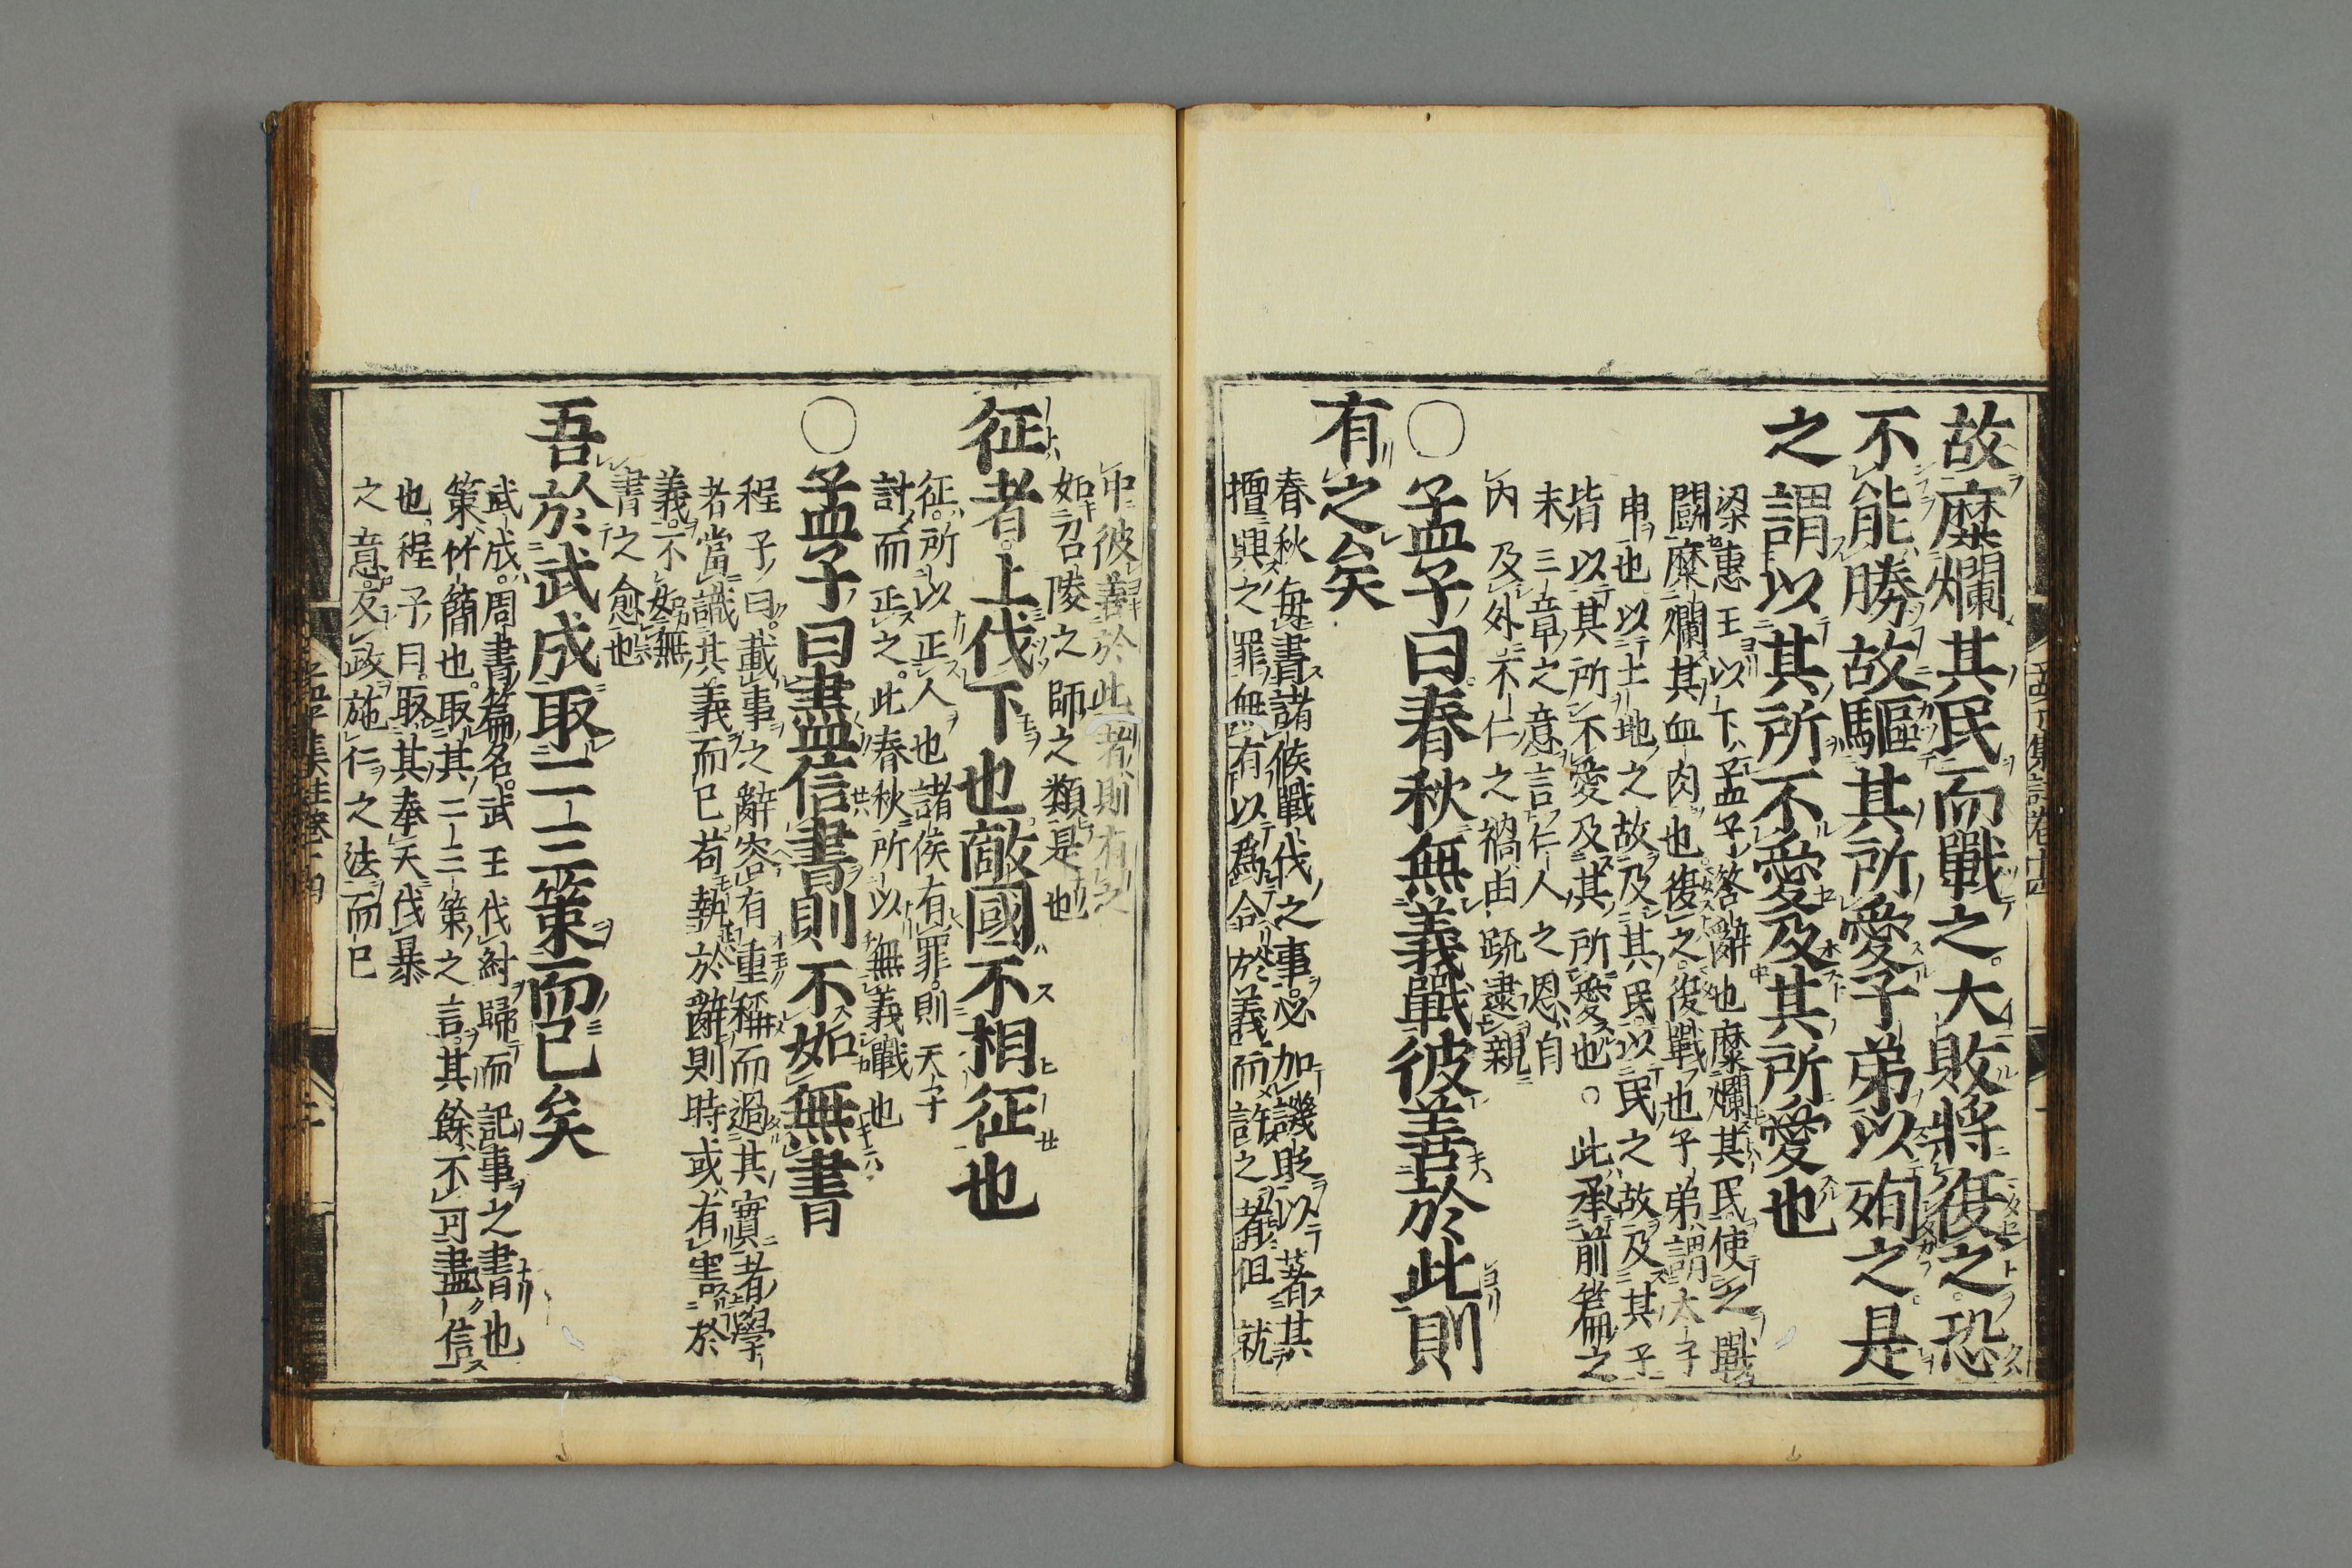 故糜爛其民而戰之。大敗將復之。恐
不能勝故驅其所愛子弟以殉之。是
之謂以其所不愛及其所愛也
梁惠王以下、孟子答辭也糜爛其民使之戰
鬪糜爛其血肉也復之。復戰也子弟、謂太子
申也以土地之故及其民。以民之故及其子
皆以其所不愛及其所愛也。此承前篇之
末三章之意言仁人之恩、自
內及外不仁之禍由疏逮親
○孟子曰春秋無義戰彼善於此則
有之矣
春秋每書諸侯戰伐之事。必加譏貶以著其
擅興之罪無有以爲合於義而許之者但就
中彼善於此者則有之
如召陵之師之類是也
征者。上伐下也敵國不相征也
征。所以正人也諸侯有罪。則天子
討而正之。此春秋所以無義戰也
○孟子曰盡信書則不如無書
程子曰。載事之辭容有重稱而過其實者學
者當識其義而已苟執於辭則時或有害於
義。不如無
書之愈也
吾於武成取二三策而已矣
武成。周書篇名。武王伐紂歸而記事之書也
策、竹簡也。取其二三策之言。其餘不可盡信
也、程子曰。取其奉天伐暴
之意。反政施仁之法而已